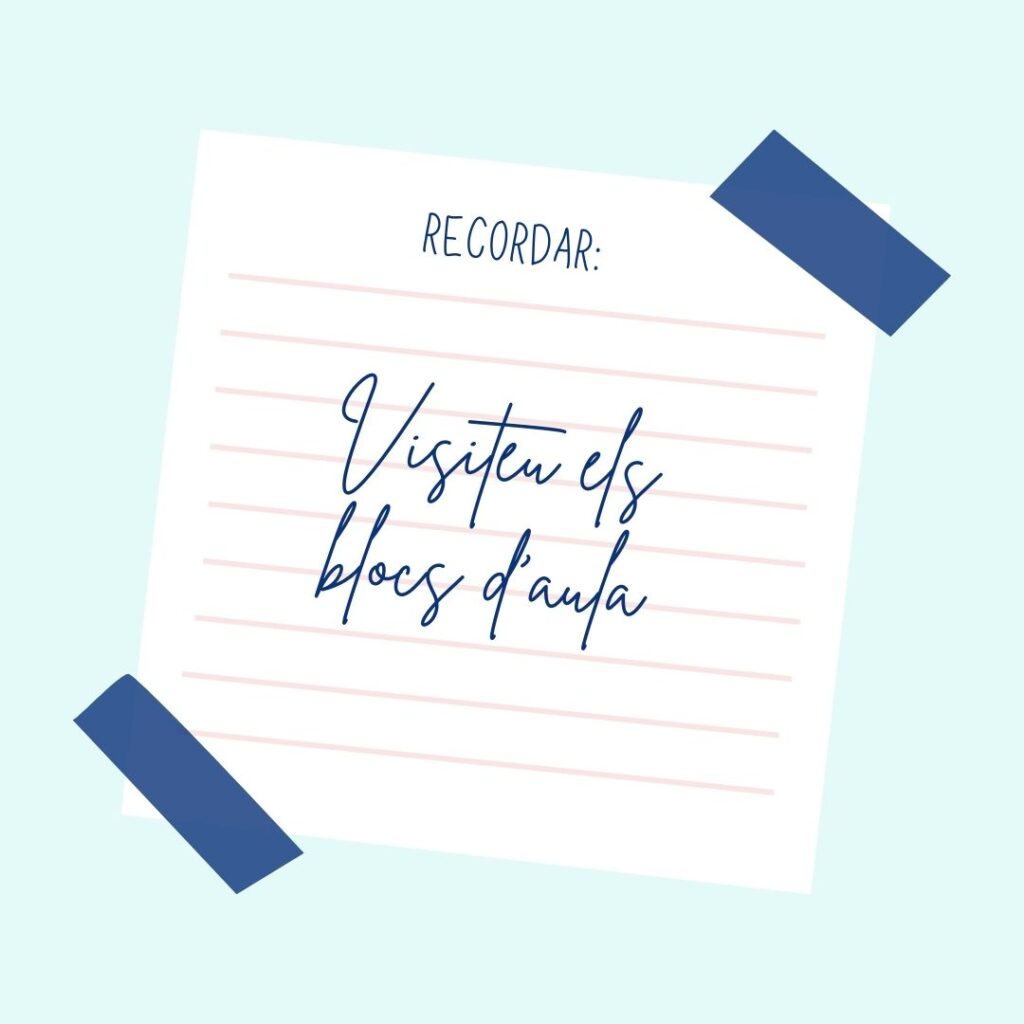 RECORDAR:
Visiteu els
blocs d'aula